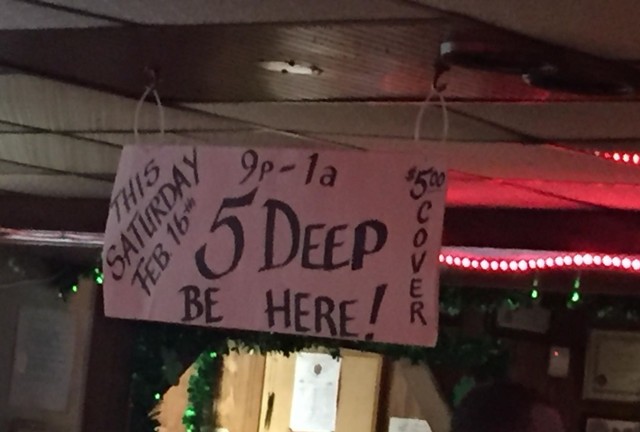 THIS
SATURDAY
FEB. 16th
9P-1a
5 DEEP
BE HERE!
$5.00
COVER